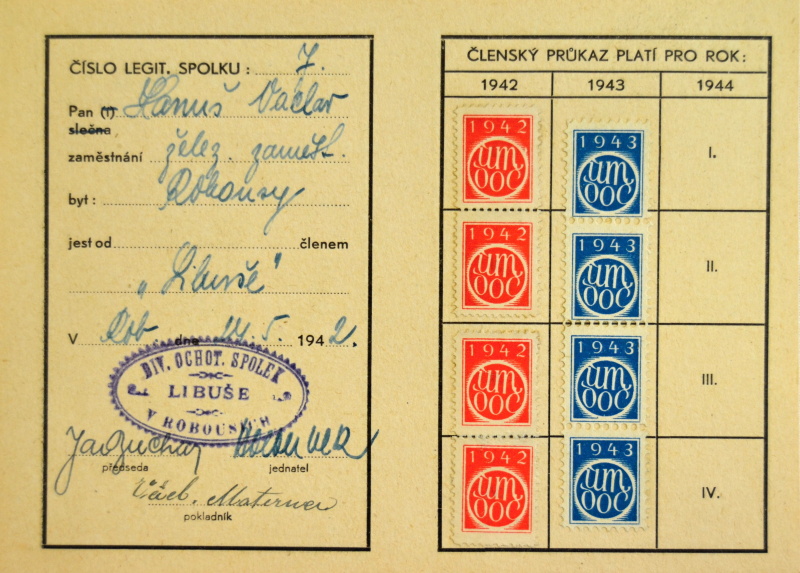 ČÍSLO LEGIT. SPOLKU: 7.
Pan (í) Hanuš Václav
slečna
zaměstnání želez. zaměst.
byt: Robousy
jest od členem
„Libuše"
V Rob dne 14. 5. 1942.
DIV. OCHOT. SPOLEK
LIBUŠE
V ROBOUSÍCH
předseda jednatel
Václ. Materna
pokladník
ČLENSKÝ PRŮKAZ PLATÍ PRO ROK:
1942 1943 1944
1942 um ooc 1943 um ooc I.
1942 um ooc 1943 um ooc II.
1942 um ooc 1943 um ooc III.
1942 um ooc 1943 um ooc IV.